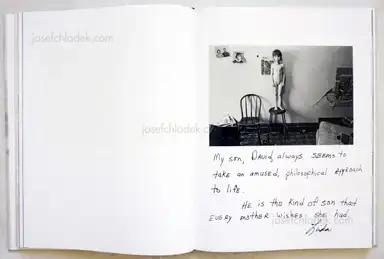 josefchladek.com
josefchladek.com
My son, David, always seems to
take an amused, philosophical approach
to life.
He is the kind of son that
every mother wishes she had.
Linda